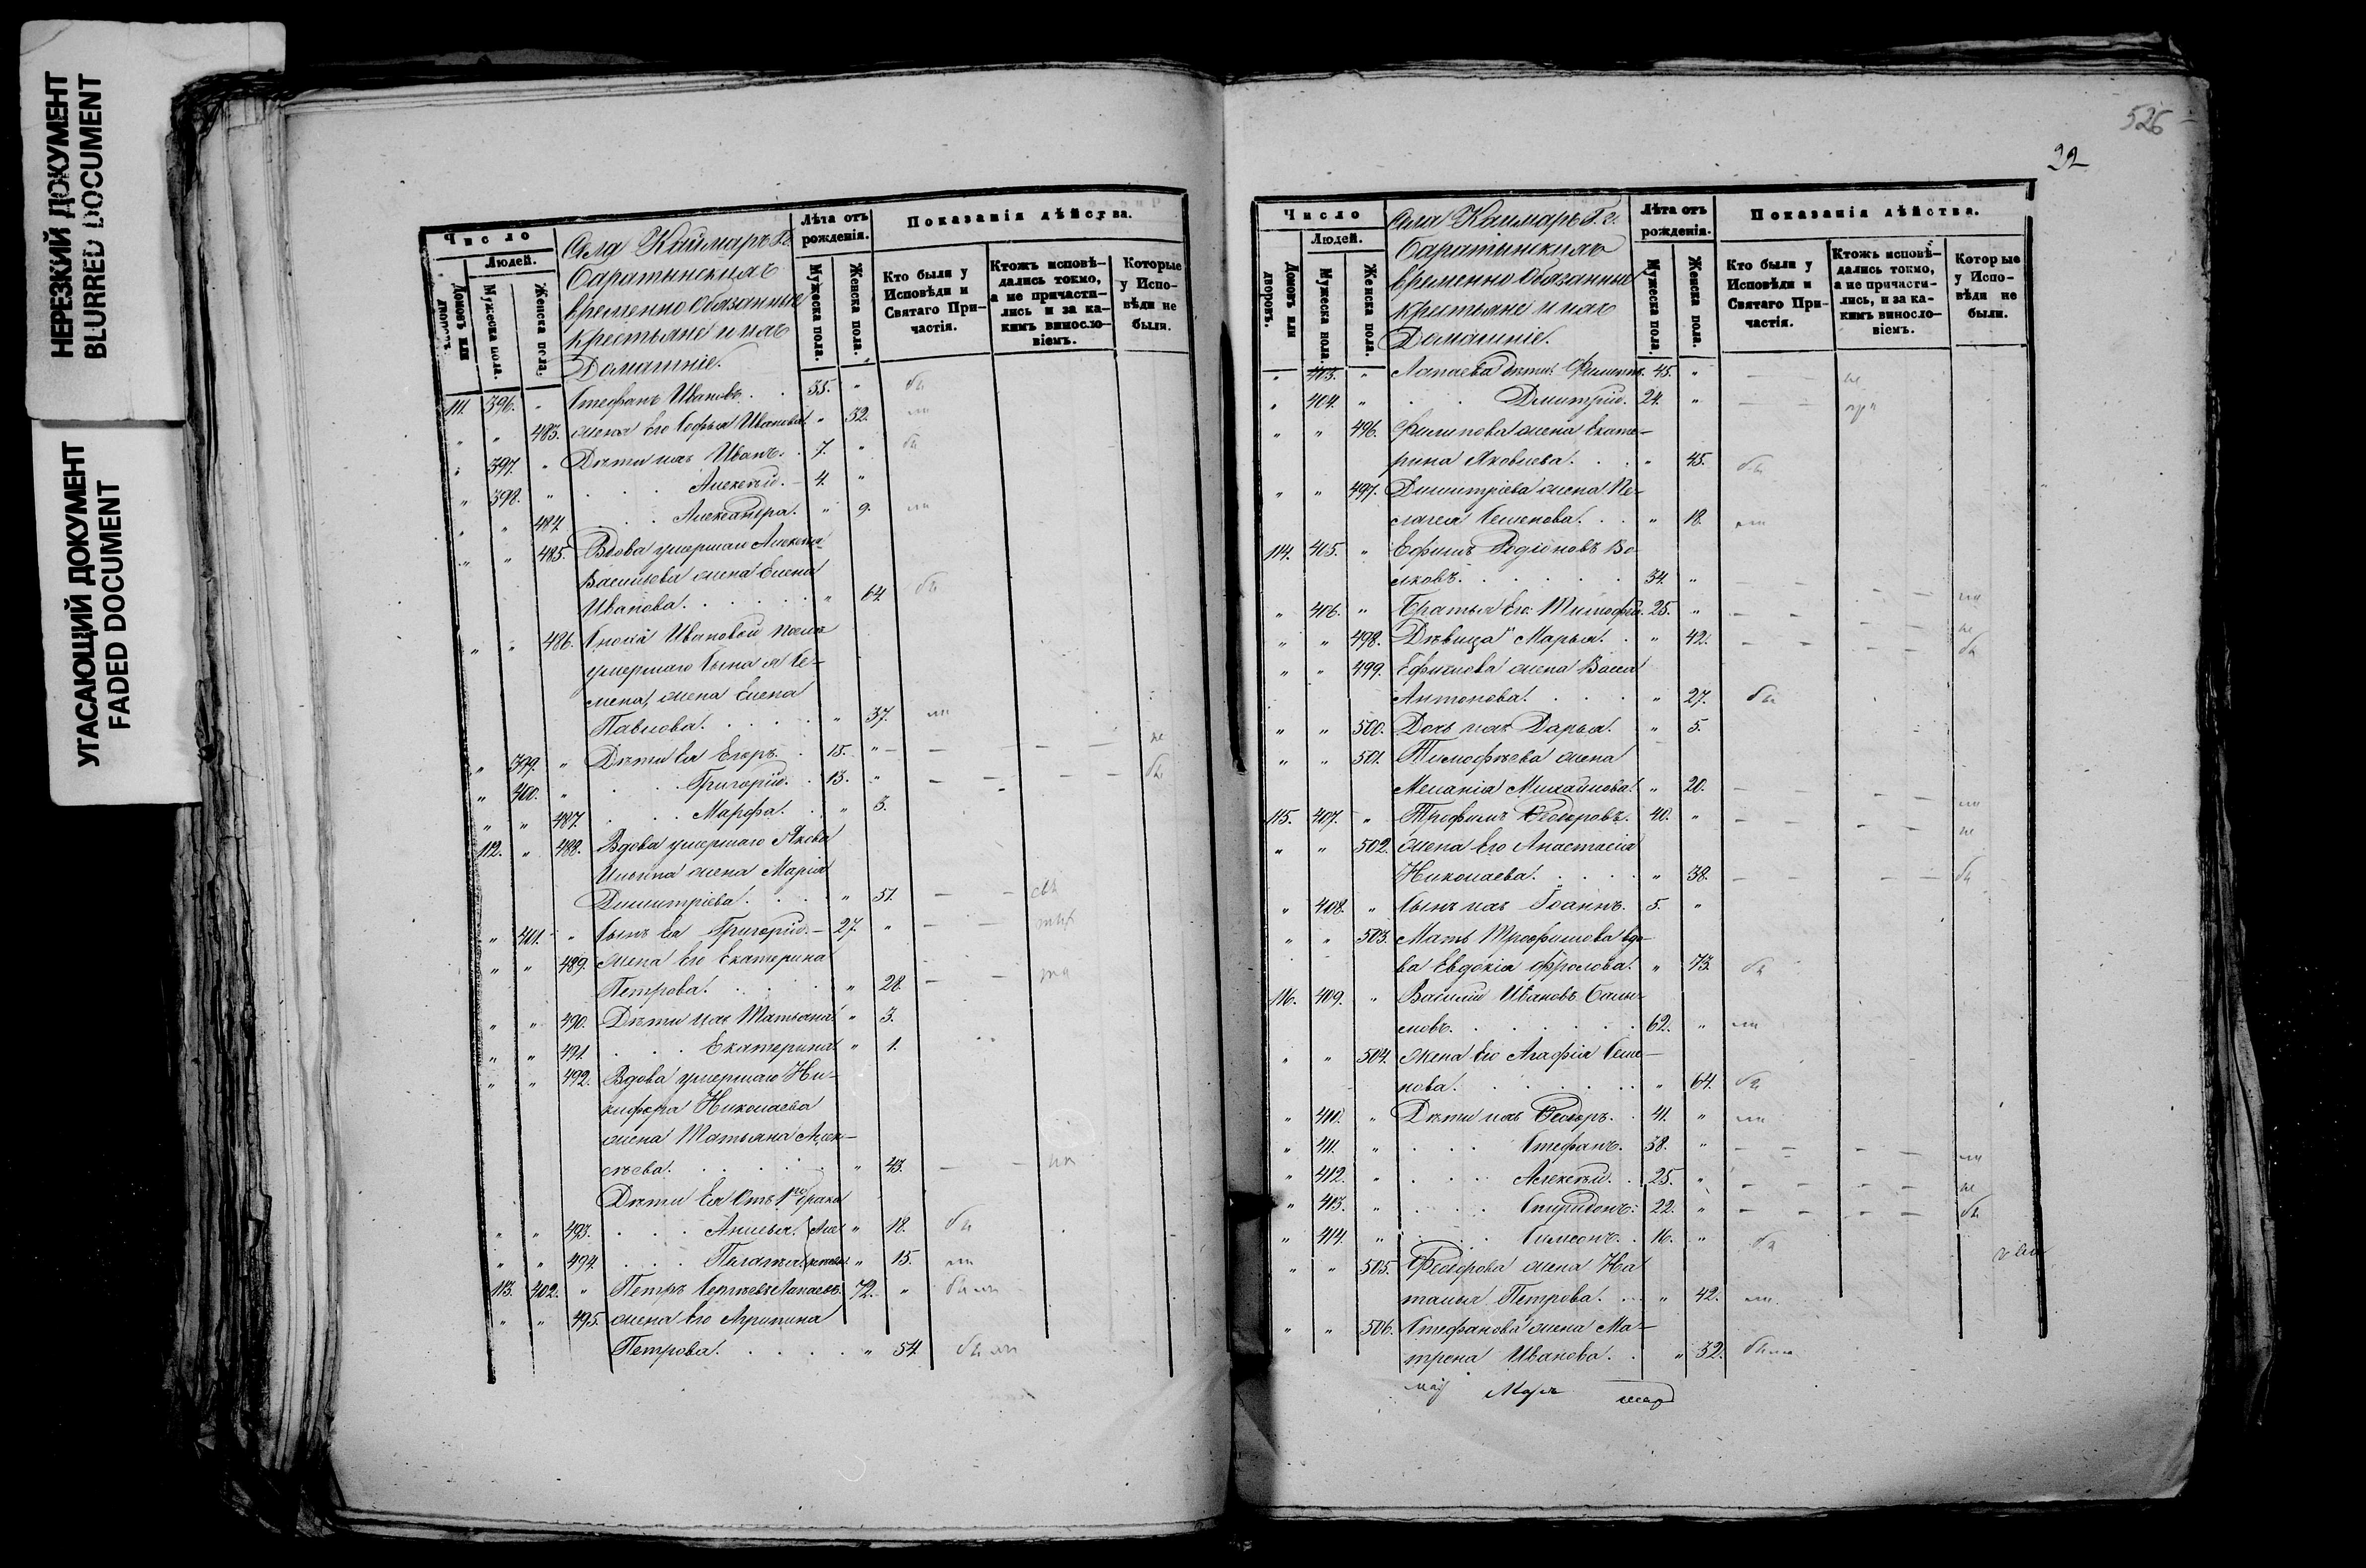 НЕРЕЗКИЙ ДОКУМЕНТ
BLURRED DOCUMENT
УГАСАЮЩИЙ ДОКУМЕНТ
FADED DOCUMENT
Число
Людей.
Домовъ или дворовъ.
Мужеска пола.
Женска пола.
Села Каймаръ Г.
Саратынскихъ
временно обязанные
крестьяне и ихъ
Домашніе.
Лѣта отъ рожденія.
Мужеска пола.
Женска пола.
Показанія дѣйства.
Кто были у Исповѣди и Святаго Причастія.
Ктожъ исповѣдались токмо, а не причастились и за какимъ винословіемъ.
Которые у Исповѣди не были.
111. 396. " Стефанъ Ивановъ. 35. " бы
" " 483. жена Его Софья Иванова. " 32. ли
" 397. " Дѣти ихъ Иванъ. 7. " бы
" 398. " Алексѣй. 4. "
" " 484. Александра. " 9. ли
" " 485. Вдова умершаго Алексѣя
Васильева жена Елена
Иванова. " 64. бы
" " 486. Сноха Ивановой послѣ
умершаго сына ея Се-
мена, жена Елена
Павлова. " 37. ли
" 399. " Дѣти Ея Егоръ. 15. " не
" 400. " Григорій. 13. " бы
" " 487. Марфа. " 3.
112. " 488. Вдова умершаго Якова
Ильина жена Марія
Димитріева. " 51.
" 401. " Сынъ Ея Григорій. 27. "
" " 489. жена Его Екатерина
Петрова. " 28.
" " 490. Дѣти ихъ Татьяна. " 3.
" " 491. Екатерина. " 1.
" " 492. Вдова умершаго Ни-
кифора Николаева
жена Татьяна Алек-
сѣева. " 43.
Дѣти Ея отъ 1го брака
" " 493. Анисья. " 18. бы
" " 494. Пелагея. " 15. ли
113. 402. " Петръ Сергѣевъ Лапаевъ. 72. " были
" " 495. жена Его Агрипина
Петрова. " 54. были
526
22
Число
Людей.
Домовъ или дворовъ.
Мужеска пола.
Женска пола.
Села Каймаръ Г.
Саратынскихъ
временно обязанные
крестьяне и ихъ
Домашніе.
Лѣта отъ рожденія.
Мужеска пола.
Женска пола.
Показанія дѣйства.
Кто были у Исповѣди и Святаго Причастія.
Ктожъ исповѣдались токмо, а не причастились, и за какимъ винословіемъ.
Которые у Исповѣди не были.
" 403. " Лапаева дѣти: Филиппъ. 45. " не
" 404. " Дмитрій. 24. " при
" " 496. Филипова жена Екате-
рина Яковлева. " 45. бы
" " 497. Димитріева жена Пе-
лагея Семенова. " 18. ли
114. 405. " Ефимъ Родіоновъ Во-
лковъ. 34. " ли
" 406. " Братья Его: Тимофей. 25. " не
" " 498. Дѣвица Марья. " 42. бы
" " 499. Ефимова жена Васса
Антонова. " 27. бы
" " 500. Дочь ихъ Дарья. " 5.
" " 501. Тимофѣева жена
Меланія Михайлова. " 20. ли
115. 407. " Трофимъ Ѳеодоровъ. 40. " не
" " 502. жена Его Анастасія
Николаева. " 38. бы
" 408. " Сынъ ихъ Іоаннъ. 5. "
" " 503. Мать Трофимова вдо-
ва Евдокія Фролова. " 73. бы
116. 409. " Василій Ивановъ
62. " ли
" " 504. жена Его Агафія Семе-
нова. " 64. бы
" 410. " Дѣти ихъ Ѳеодоръ. 41. " ли
" 411. " Стефанъ. 38. " ли
" 412. " Алексѣй. 25. " не
" 413. " Спиридонъ. 22. " бы
" 414. " Симеонъ. 16. " бы
" " 505. Ѳеодорова жена На
талья Петрова. " 42. ли
" " 506. Стефанова жена Ма-
трена Иванова. " 32. были